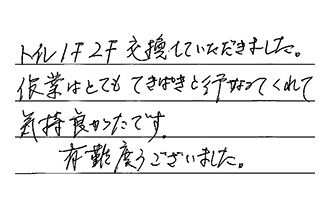 トイレ1F2F交換していただきました。
作業はとてもてきぱきと行なってくれて
気持良かったです。
有難度うございました。